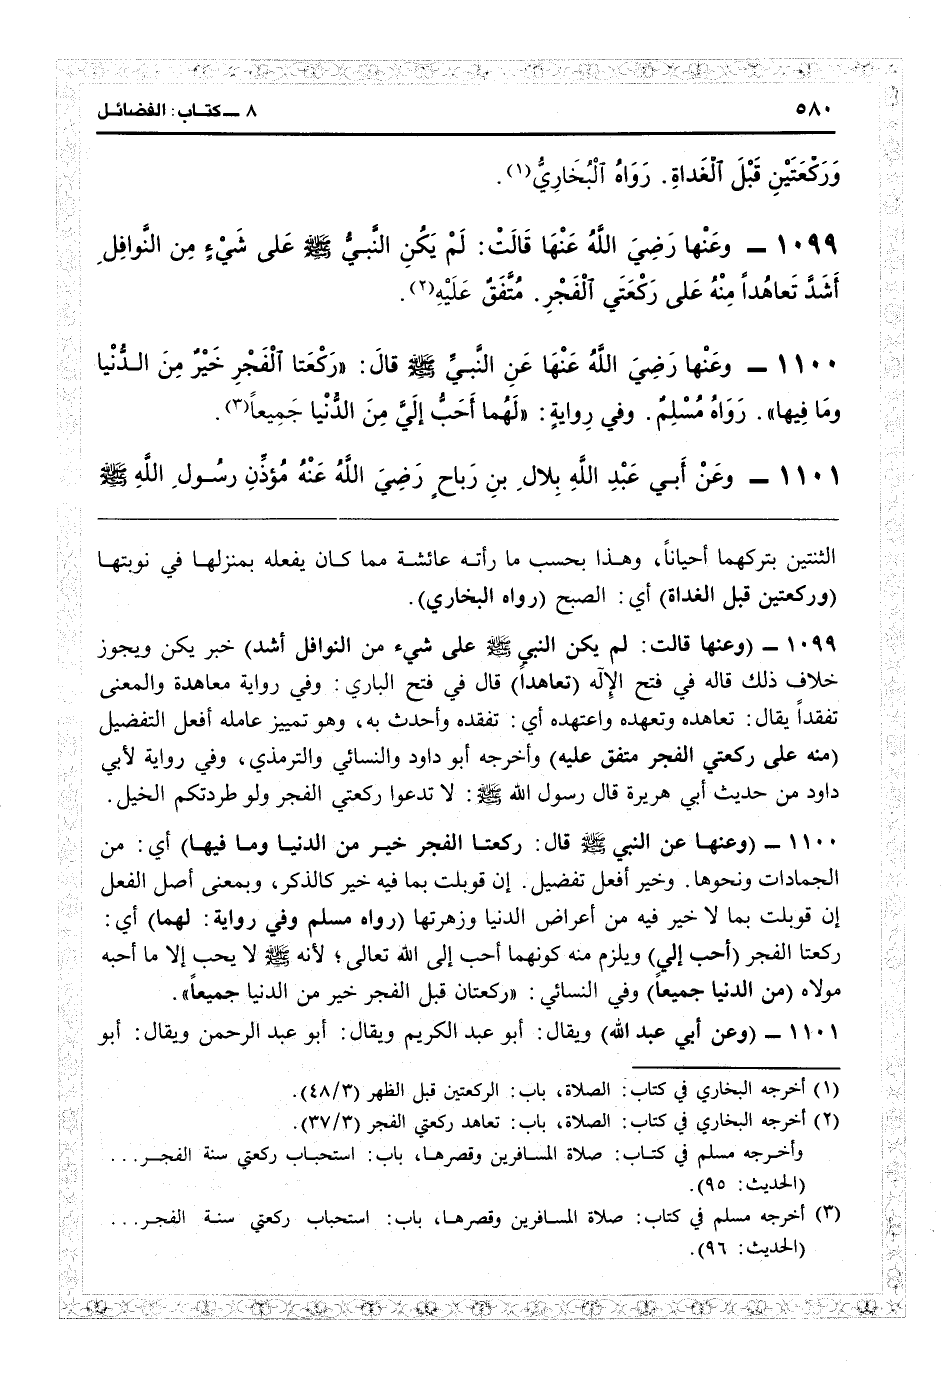 ٥٨٠
٨ ـ كتاب: الفضائل
وَرَكْعَتَيْنِ قَبْلَ ٱلْغَداةِ. رَوَاهُ ٱلْبُخَارِيُّ(١).
١٠٩٩ ـ وعَنْها رَضِيَ اللَّهُ عَنْهَا قَالَتْ: لَمْ يَكُنِ النَّبيُّ ﷺ عَلى شَيْءٍ مِن النَّوافِلِ
أَشَدَّ تَعاهُداً مِنْهُ عَلى رَكْعَتَي ٱلْفَجْرِ. مُتَّفَقٌ عَلَيْهِ(٢).
١١٠٠ ـ وعَنْها رَضِيَ اللَّهُ عَنْهَا عَنِ النَّبيِّ ﷺ قالَ: «رَكْعَتا ٱلْفَجْرِ خَيْرٌ مِنَ الـدُّنْيا
ومَا فِيها». رَوَاهُ مُسْلِمٌ. وفي رِوايةٍ: «لَهُما أَحَبُّ إلَيَّ مِنَ الدُّنْيا جَمِيعاً»(٣).
١١٠١ ـ وعَنْ أَبـي عَبْدِ اللَّهِ بِلالِ بنِ رَباحٍ رَضِيَ اللَّهُ عَنْهُ مُؤذِّنِ رسُـولِ اللَّهِ ﷺ
الثنتين بتركهما أحياناً، وهـذا بحسب ما رأتـه عائشـة مما كـان يفعله بمنزلهـا في نوبتهـا
(وركعتين قبل الغداة) أي: الصبح (رواه البخاري).
١٠٩٩ ـ (وعنها قالت: لم يكن النبي ﷺ على شيء من النوافل أشد) خبر يكن ويجوز
خلاف ذلك قاله في فتح الإله (تعاهداً) قال في فتح الباري: وفي رواية معاهدة والمعنى
تفقداً يقال: تعاهده وتعهده واعتهده أي: تفقده وأحدث به، وهو تمييز عامله أفعل التفضيل
(منه على ركعتي الفجر متفق عليه) وأخرجه أبو داود والنسائي والترمذي، وفي رواية لأبي
داود من حديث أبي هريرة قال رسول الله ﷺ: لا تدعوا ركعتي الفجر ولو طردتكم الخيل.
١١٠٠ ـ (وعنهـا عن النبي ﷺ قال: ركعتـا الفجر خيـر من الدنيـا ومـا فيهـا) أي: من
الجمادات ونحوها. وخير أفعل تفضيل. إن قوبلت بما فيه خير كالذكر، وبمعنى أصل الفعل
إن قوبلت بما لا خير فيه من أعراض الدنيا وزهرتها (رواه مسلم وفي رواية: لهما) أي:
ركعتا الفجر (أحب إلي) ويلزم منه كونهما أحب إلى الله تعالى؛ لأنه ﷺ لا يحب إلا ما أحبه
مولاه (من الدنيا جميعاً) وفي النسائي: «ركعتان قبل الفجر خير من الدنيا جميعاً».
١١٠١ ـ (وعن أبي عبد الله) ويقال: أبو عبد الكريم ويقال: أبو عبد الرحمن ويقال: أبو
(١) أخرجه البخاري في كتاب: الصلاة، باب: الركعتين قبل الظهر (٤٨/٣).
(٢) أخرجه البخاري في كتاب: الصلاة، باب: تعاهد ركعتي الفجر (٣٧/٣).
وأخـرجه مسلم في كتـاب: صلاة المسـافرين وقصرهـا، باب: استحبـاب ركعتي سنة الفجـر...
(الحديث: ٩٥).
(٣) أخرجه مسلم في كتاب: صلاة المسافرين وقصرهـا، باب: استحباب ركعتي سنـة الفجـر...
(الحديث: ٩٦).